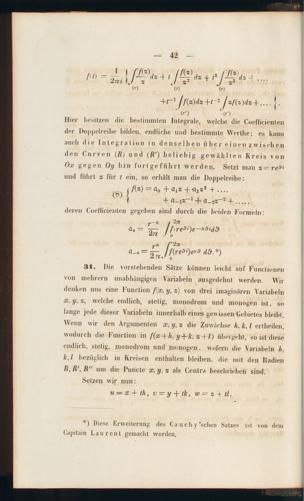 — 42 —
f(t) = 1/2πi { ∫ f(z)/z dz + t ∫ f(z)/z² dz + t² ∫ f(z)/z³ dz + ....
(r) (r) (r)
+ t⁻¹ ∫ f(z)dz + t⁻² ∫ z f(z)dz + .... }.
(r') (r')
Hier besitzen die bestimmten Integrale, welche die Coefficienten
der Doppelreihe bilden, endliche und bestimmte Werthe; es kann
auch die Integration in denselben über einen zwischen
den Curven (R) und (R') beliebig gewählten Kreis von
Oz gegen Oy hin fortgeführt werden. Setzt man z = re^ϑi
und führt z für t ein, so erhält man die Doppelreihe:
(8) { f(z) = a₀ + a₁z + a₂z² + ....
+ a₋₁z⁻¹ + a₋₂z⁻² + .....
deren Coefficienten gegeben sind durch die beiden Formeln:
aₙ = r⁻ⁿ/2π ∫₀^2π f(re^ϑi)e^−nϑi dϑ
a₋ₙ = rⁿ/2π ∫₀^2π f(re^ϑi)e^nϑi dϑ.*)
31. Die vorstehenden Sätze können leicht auf Functionen
von mehrern unabhängigen Variabeln ausgedehnt werden. Wir
denken uns eine Function f(x, y, z) von drei imaginären Variabeln
x, y, z, welche endlich, stetig, monodrom und monogen ist, so
lange jede dieser Variabeln innerhalb eines gewissen Gebietes bleibt.
Wenn wir den Argumenten x, y, z die Zuwächse h, k, l ertheilen,
wodurch die Function in f(x+h, y+k, z+l) übergeht, so ist diese
endlich, stetig, monodrom und monogen, wofern die Variabeln h,
k, l bezüglich in Kreisen enthalten bleiben, die mit den Radien
R, R', R'' um die Puncte x, y, z als Centra beschrieben sind.
Setzen wir nun:
u = x + th, v = y + tk, w = z + tl.
*) Diese Erweiterung des Cauchy'schen Satzes ist von dem
Capitain Laurent gemacht worden.